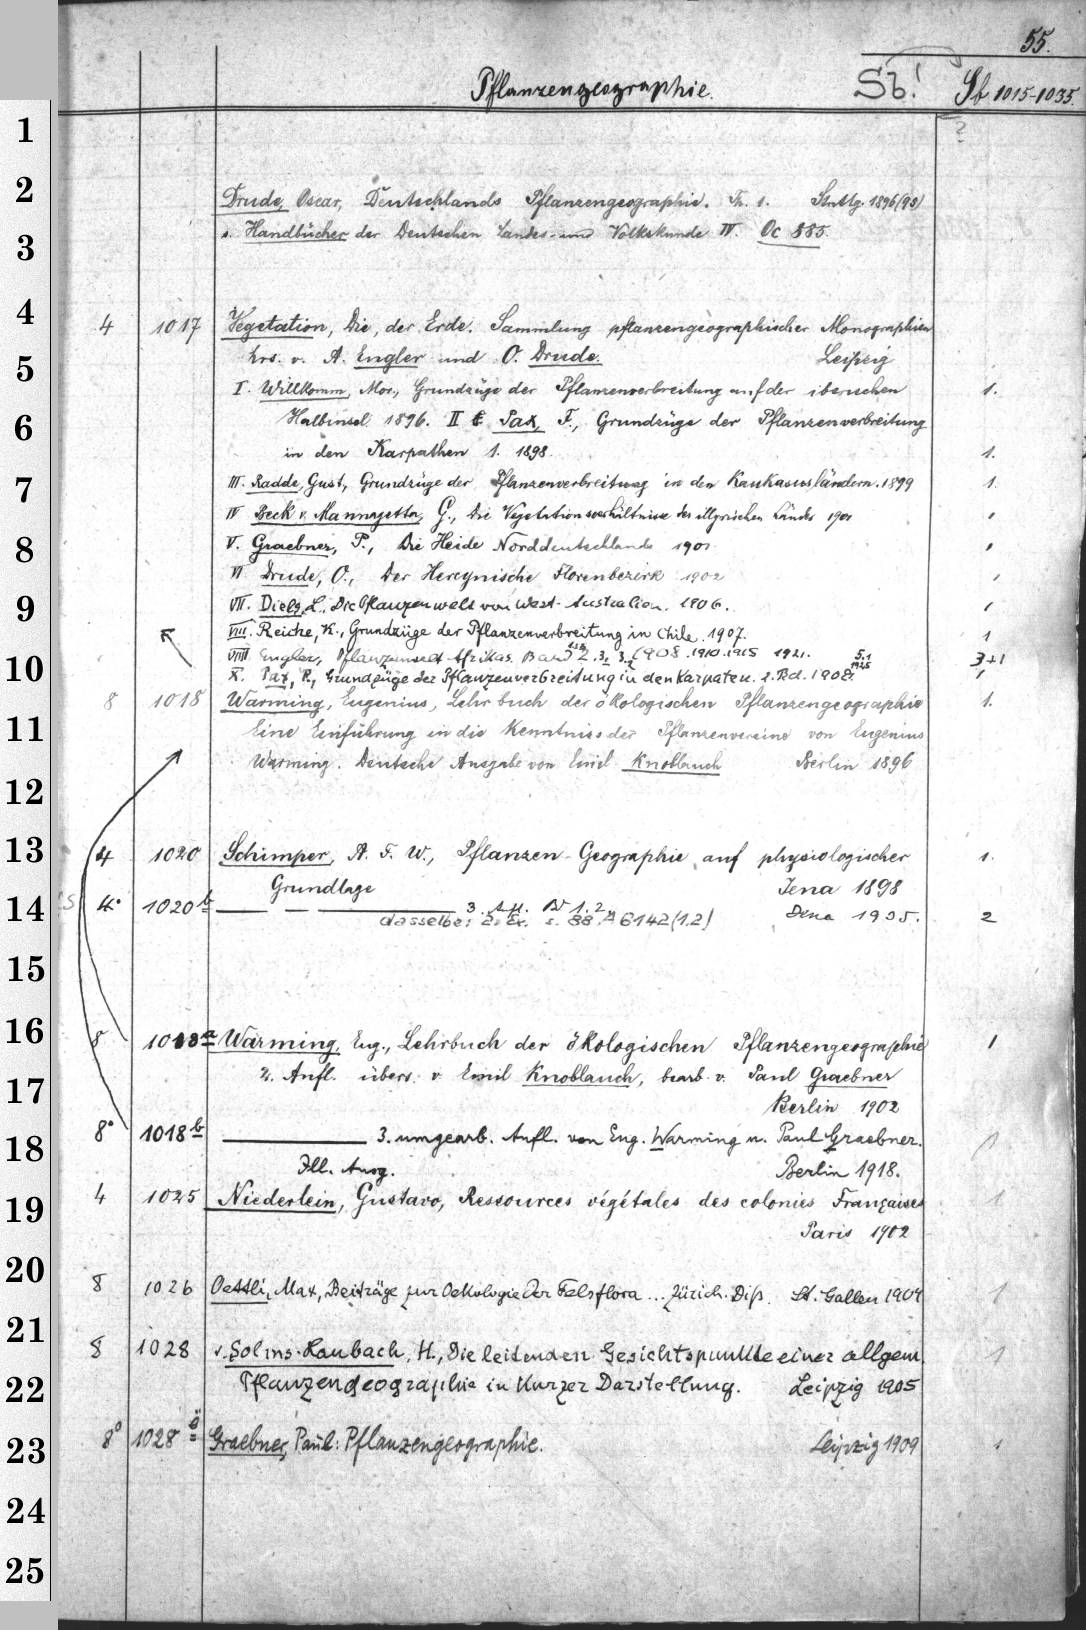 55.
Pflanzengeographie. Sb! Sb 1015-1035.
?
1
2
Drude, Oscar, Deutschlands Pflanzengeographie. Th. 1. Stuttg. 1896(95)
s. Handbücher der Deutschen Landes- und Volkskunde IV. Oc 885.
3
4
4 1017 Vegetation, Die, der Erde. Sammlung pflanzengeographischer Monographien
hrs. v. A. Engler und O. Drude. Leipzig
5
I. Willkomm, Mor., Grundzüge der Pflanzenverbreitung auf der iberischen 1.
Halbinsel 1896. II Pax, F., Grundzüge der Pflanzenverbreitung
6
in den Karpathen 1. 1898. 1.
7
III. Radde, Gust, Grundzüge der Pflanzenverbreitung in den Kaukasusländern. 1899 1.
IV Beck v. Mannagetta, G., Die Vegetationsverhältnisse der illyrischen Länder 1901
8
V. Graebner, P., Die Heide Norddeutschlands 1901.
VI Drude, O., Der Hercynische Florenbezirk 1902
9
VII. Diels, L., Die Pflanzenwelt von West-Australien. 1906.
VIII. Reiche, K., Grundzüge der Pflanzenverbreitung in Chile. 1907. 1
VIIII Engler, Pflanzenwelt Afrikas. Band 1,1.2. 2. 3,1 3,2 1908. 1910. 1915 1921. 5.1 1925 3+1
10
X. Pax, F., Grundzüge der Pflanzenverbreitung in den Karpaten. 2. Bd. 1908.
8 1018 Warming, Eugenius, Lehrbuch der ökologischen Pflanzengeographie 1.
11
Eine Einführung in die Kenntniss der Pflanzenvereine von Eugenius
Warming. Deutsche Ausgabe von Emil Knoblauch Berlin 1896
12
13
4 1020 Schimper, A. F. W., Pflanzen-Geographie auf physiologischer 1.
Grundlage Jena 1898
14
4° 1020b 3. Afl. Bd 1. 2. Jena 1935. 2
dasselbe: 2. Ex. s. 88. A 6142(1.2)
15
16
8 1018a Warming, Eug., Lehrbuch der ökologischen Pflanzengeographie 1
2. Aufl. übers. v. Emil Knoblauch, bearb. v. Paul Graebner
17
Berlin 1902
18
8° 1018b 3. umgearb. Aufl. von Eug. Warming u. Paul Graebner. 1
Ill. Ausg. Berlin 1918.
19
4 1025 Niederlein, Gustavo, Ressources végétales des colonies Françaises 1
Paris 1902
20
8 1026 Oettli, Max, Beiträge zur Oekologie der Felsflora ... Zürich. Diss. St. Gallen 1904 1
21
8 1028 v. Solms-Laubach, H., Die leitenden Gesichtspunkte einer allgem. 1
22
Pflanzengeographie in kurzer Darstellung. Leipzig 1905
23
8° 1028ö Graebner, Paul: Pflanzengeographie. Leipzig 1909 1
24
25